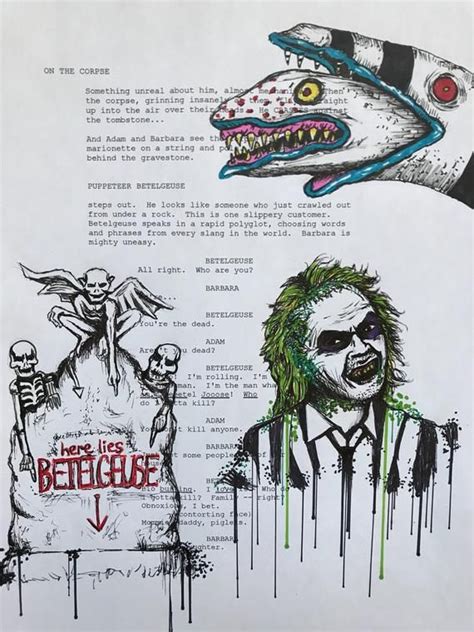 ON THE CORPSE
Something unreal about him, almost Then
the corpse, grinning insanely
up into the air over their against
the tombstone...
And Adam and Barbara see the
marionette on a string and
behind the gravestone.
PUPPETEER BETELGEUSE
steps out. He looks like someone who just crawled out
from under a rock. This is one slippery customer.
Betelgeuse speaks in a rapid polyglot, choosing words
and phrases from every slang in the world. Barbara is
mighty uneasy.
BETELGEUSE
All right. Who are you?
BARBARA
BETELGEUSE
You're the dead.
ADAM
you dead?
BETELGEUSE
I'm rolling. I'm
man. I'm the man
Jooose! Who
do I kill?
ADAM
kill anyone.
some people
here lies
BETELGEUSE
kill? Family -- right?
Obnoxious, I bet.
(contorting face)
daddy, piglets.
BARBARA